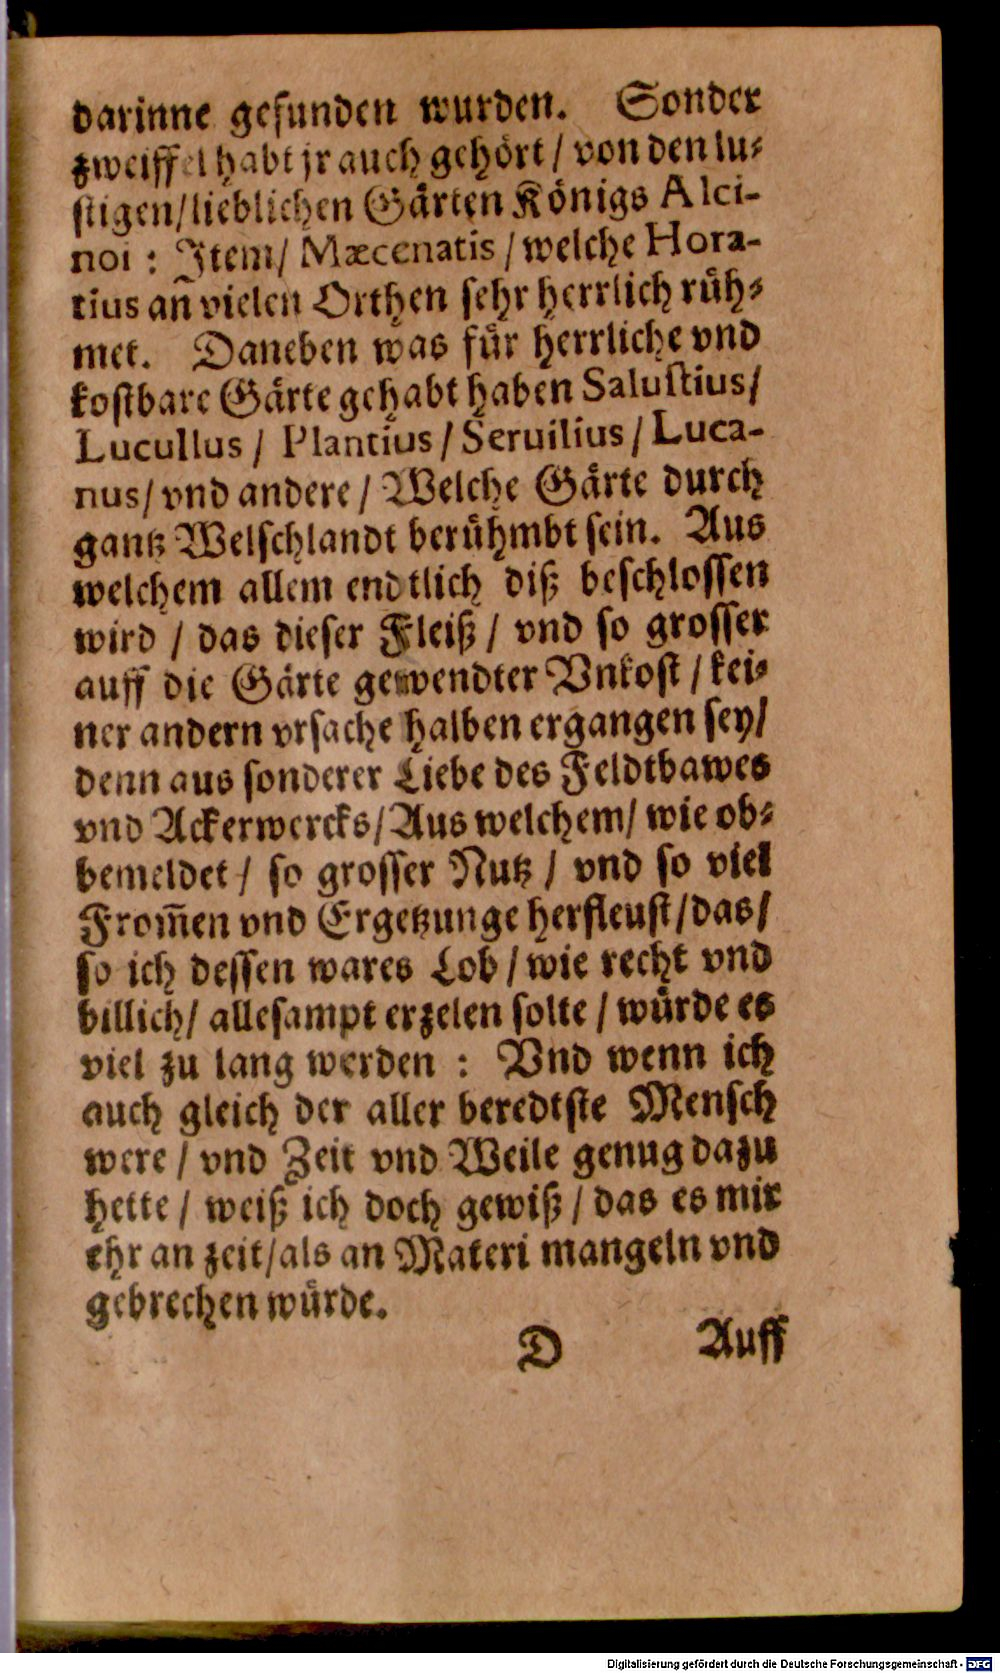 darinne gefunden wurden. Sonder
zweiffel habt jr auch gehört / von den lu-
stigen/lieblichen Gärten Königs Alci-
noi : Item/ Mæcenatis / welche Hora-
tius an vielen Orthen sehr herrlich rüh-
met. Daneben was für herrliche vnd
kostbare Gärte gehabt haben Salustius/
Lucullus / Plantius / Seruilius / Luca-
nus/ vnd andere / Welche Gärte durch
gantz Welschlandt berühmbt sein. Aus
welchem allem endtlich diß beschlossen
wird / das dieser Fleiß / vnd so grosser
auff die Gärte gewendter Vnkost / kei-
ner andern vrsache halben ergangen sey/
denn aus sonderer Liebe des Feldtbawes
vnd Ackerwercks/Aus welchem/ wie ob-
bemeldet / so grosser Nutz / vnd so viel
From̃en vnd Ergetzunge herfleust/das/
so ich dessen wares Lob / wie recht vnd
billich/ allesampt erzelen solte / würde es
viel zu lang werden : Vnd wenn ich
auch gleich der aller beredtste Mensch
were / vnd Zeit vnd Weile genug dazu
hette / weiß ich doch gewiß / das es mir
ehr an zeit/als an Materi mangeln vnd
gebrechen würde.
D Auff
Digitalisierung gefördert durch die Deutsche Forschungsgemeinschaft - DFG